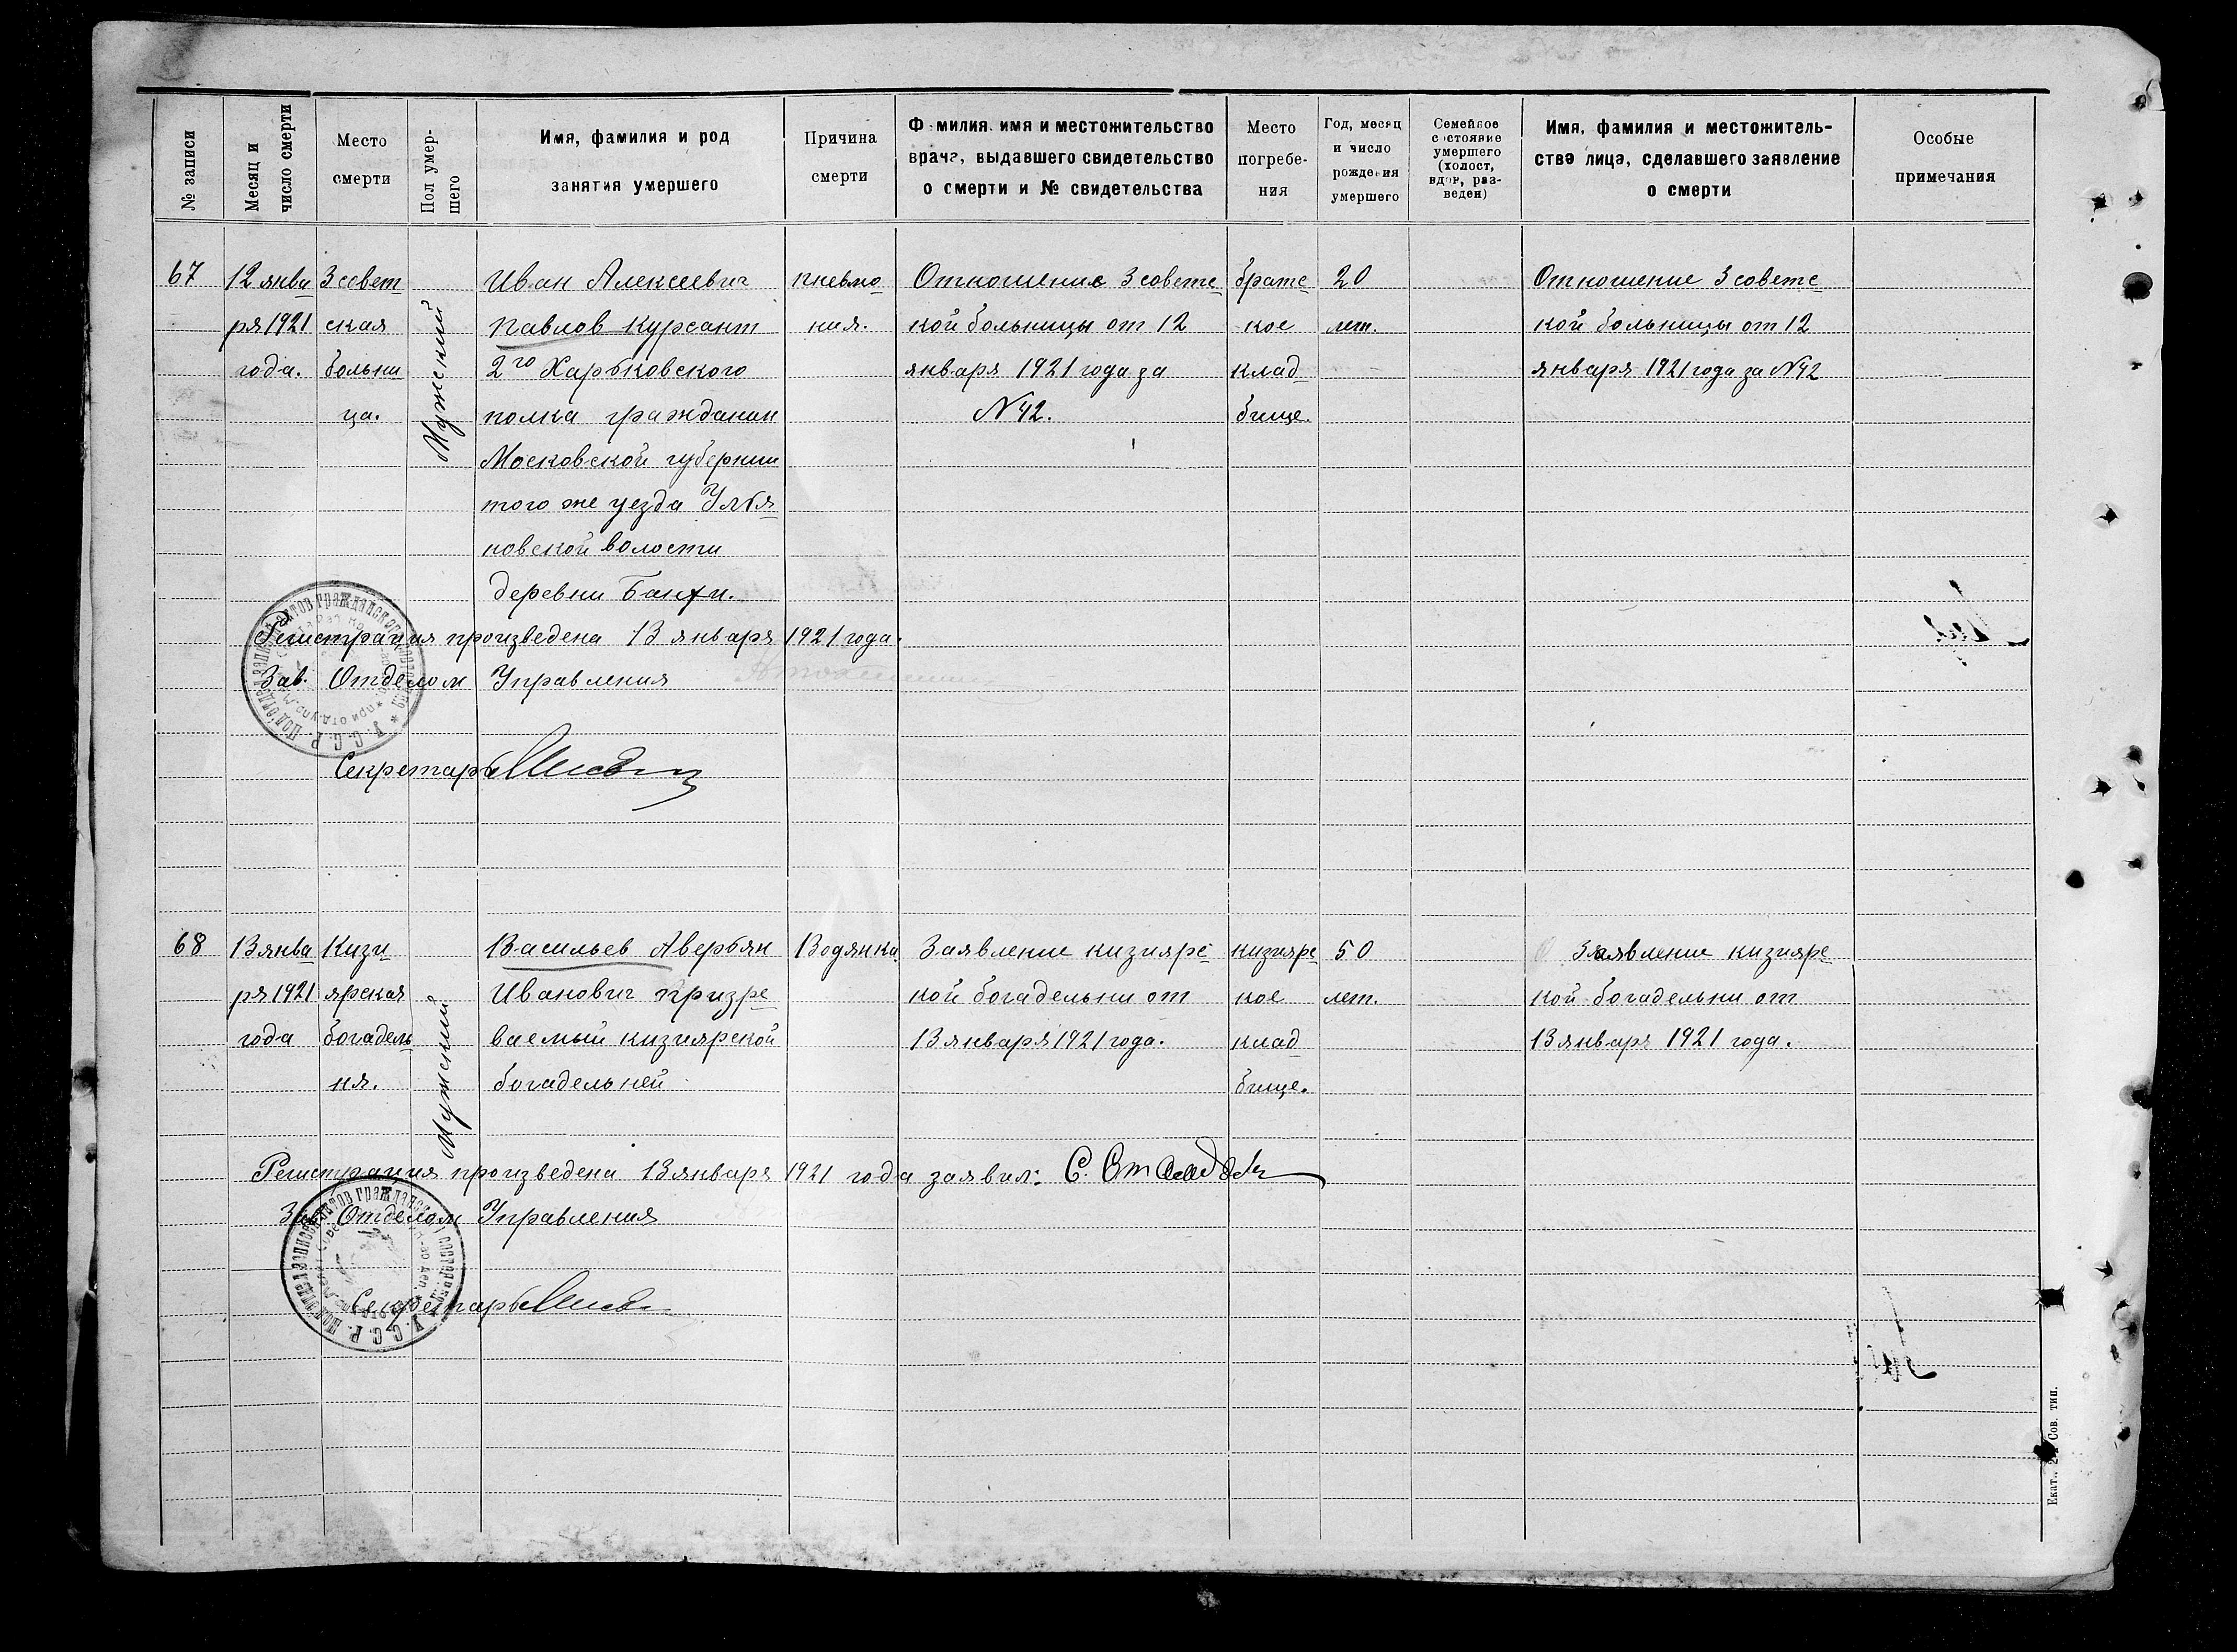 № записи
Месяц и число смерти
Место смерти
Пол умер-
шего
Имя, фамилия и род
занятия умершего
Причина
смерти
Фамилия, имя и местожительство
врача, выдавшего свидетельство
о смерти и № свидетельства
Место
погребе-
ния
Год, месяц
и число
рождения
умершего
Семейное
состояние
умершего
(холост,
вдов, раз-
веден)
Имя, фамилия и местожитель-
ство лица, сделавшего заявление
о смерти
Особые
примечания
67
12 янва
ря 1921
года.
3 совет
ская
больни
ца.
Мужский
Иван Алексеевич
Павлов Курсант
2го Харьковского
полка гражданин
Московской губернии
того же уезда Улья
новской волости
деревни
пневмо
ния.
Отношение 3 советс
кой больницы от 12
января 1921 года за
N 42.
братс
кое
клад
бище.
20
лет.
Отношение 3 советс
кой больницы от 12
января 1921 года за N 42
Регистрация произведена 13 января 1921 года.
Зав. Отделом Управления
Секретарь
68
13 янва
ря 1921
года
Кизи
ярская
богадель
ня.
Мужский
Васильев Аверьян
Иванович призре
ваемый кизиярской
богадельней
Водянка
Заявление кизиярс
кой богадельни от
13 января 1921 года.
кизиярс
кое
клад
бище.
50
лет.
Заявление кизиярс
кой богадельни от
13 января 1921 года.
Регистрация произведена 13 января 1921 года заявил: С.
Зав. Отделом Управления
Секретарь
У.С.С.Р.
У.С.С.Р.
Сов. тип.